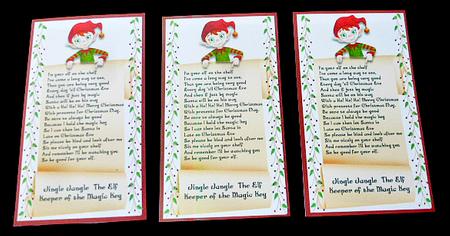 I'm your elf on the shelf
I've come a long way to see,
That you are being very good
Every day 'til Christmas Eve
And then just by magic
Santa will be on his way
With a Ho! Ho! Ho! Merry Christmas
With presents for Christmas Day.
Be sure to always be good
Because I hold the magic key
So I can then let Santa in
Late on Christmas Eve
So please be kind and look after me
Sit me nicely on your shelf
And remember I'll be watching you
So be good for your elf.
Jingle Jangle The Elf
Keeper of the Magic Key
I'm your elf on the shelf
I've come a long way to see,
That you are being very good
Every day 'til Christmas Eve
And then just by magic
Santa will be on his way
With a Ho! Ho! Ho! Merry Christmas
With presents for Christmas Day.
Be sure to always be good
Because I hold the magic key
So I can then let Santa in
Late on Christmas Eve
So please be kind and look after me
Sit me nicely on your shelf
And remember I'll be watching you
So be good for your elf.
Jingle Jangle The Elf
Keeper of the Magic Key
I'm your elf on the shelf
I've come a long way to see,
That you are being very good
Every day 'til Christmas Eve
And then just by magic
Santa will be on his way
With a Ho! Ho! Ho! Merry Christmas
With presents for Christmas Day.
Be sure to always be good
Because I hold the magic key
So I can then let Santa in
Late on Christmas Eve
So please be kind and look after me
Sit me nicely on your shelf
And remember I'll be watching you
So be good for your elf.
Jingle Jangle The Elf
Keeper of the Magic Key